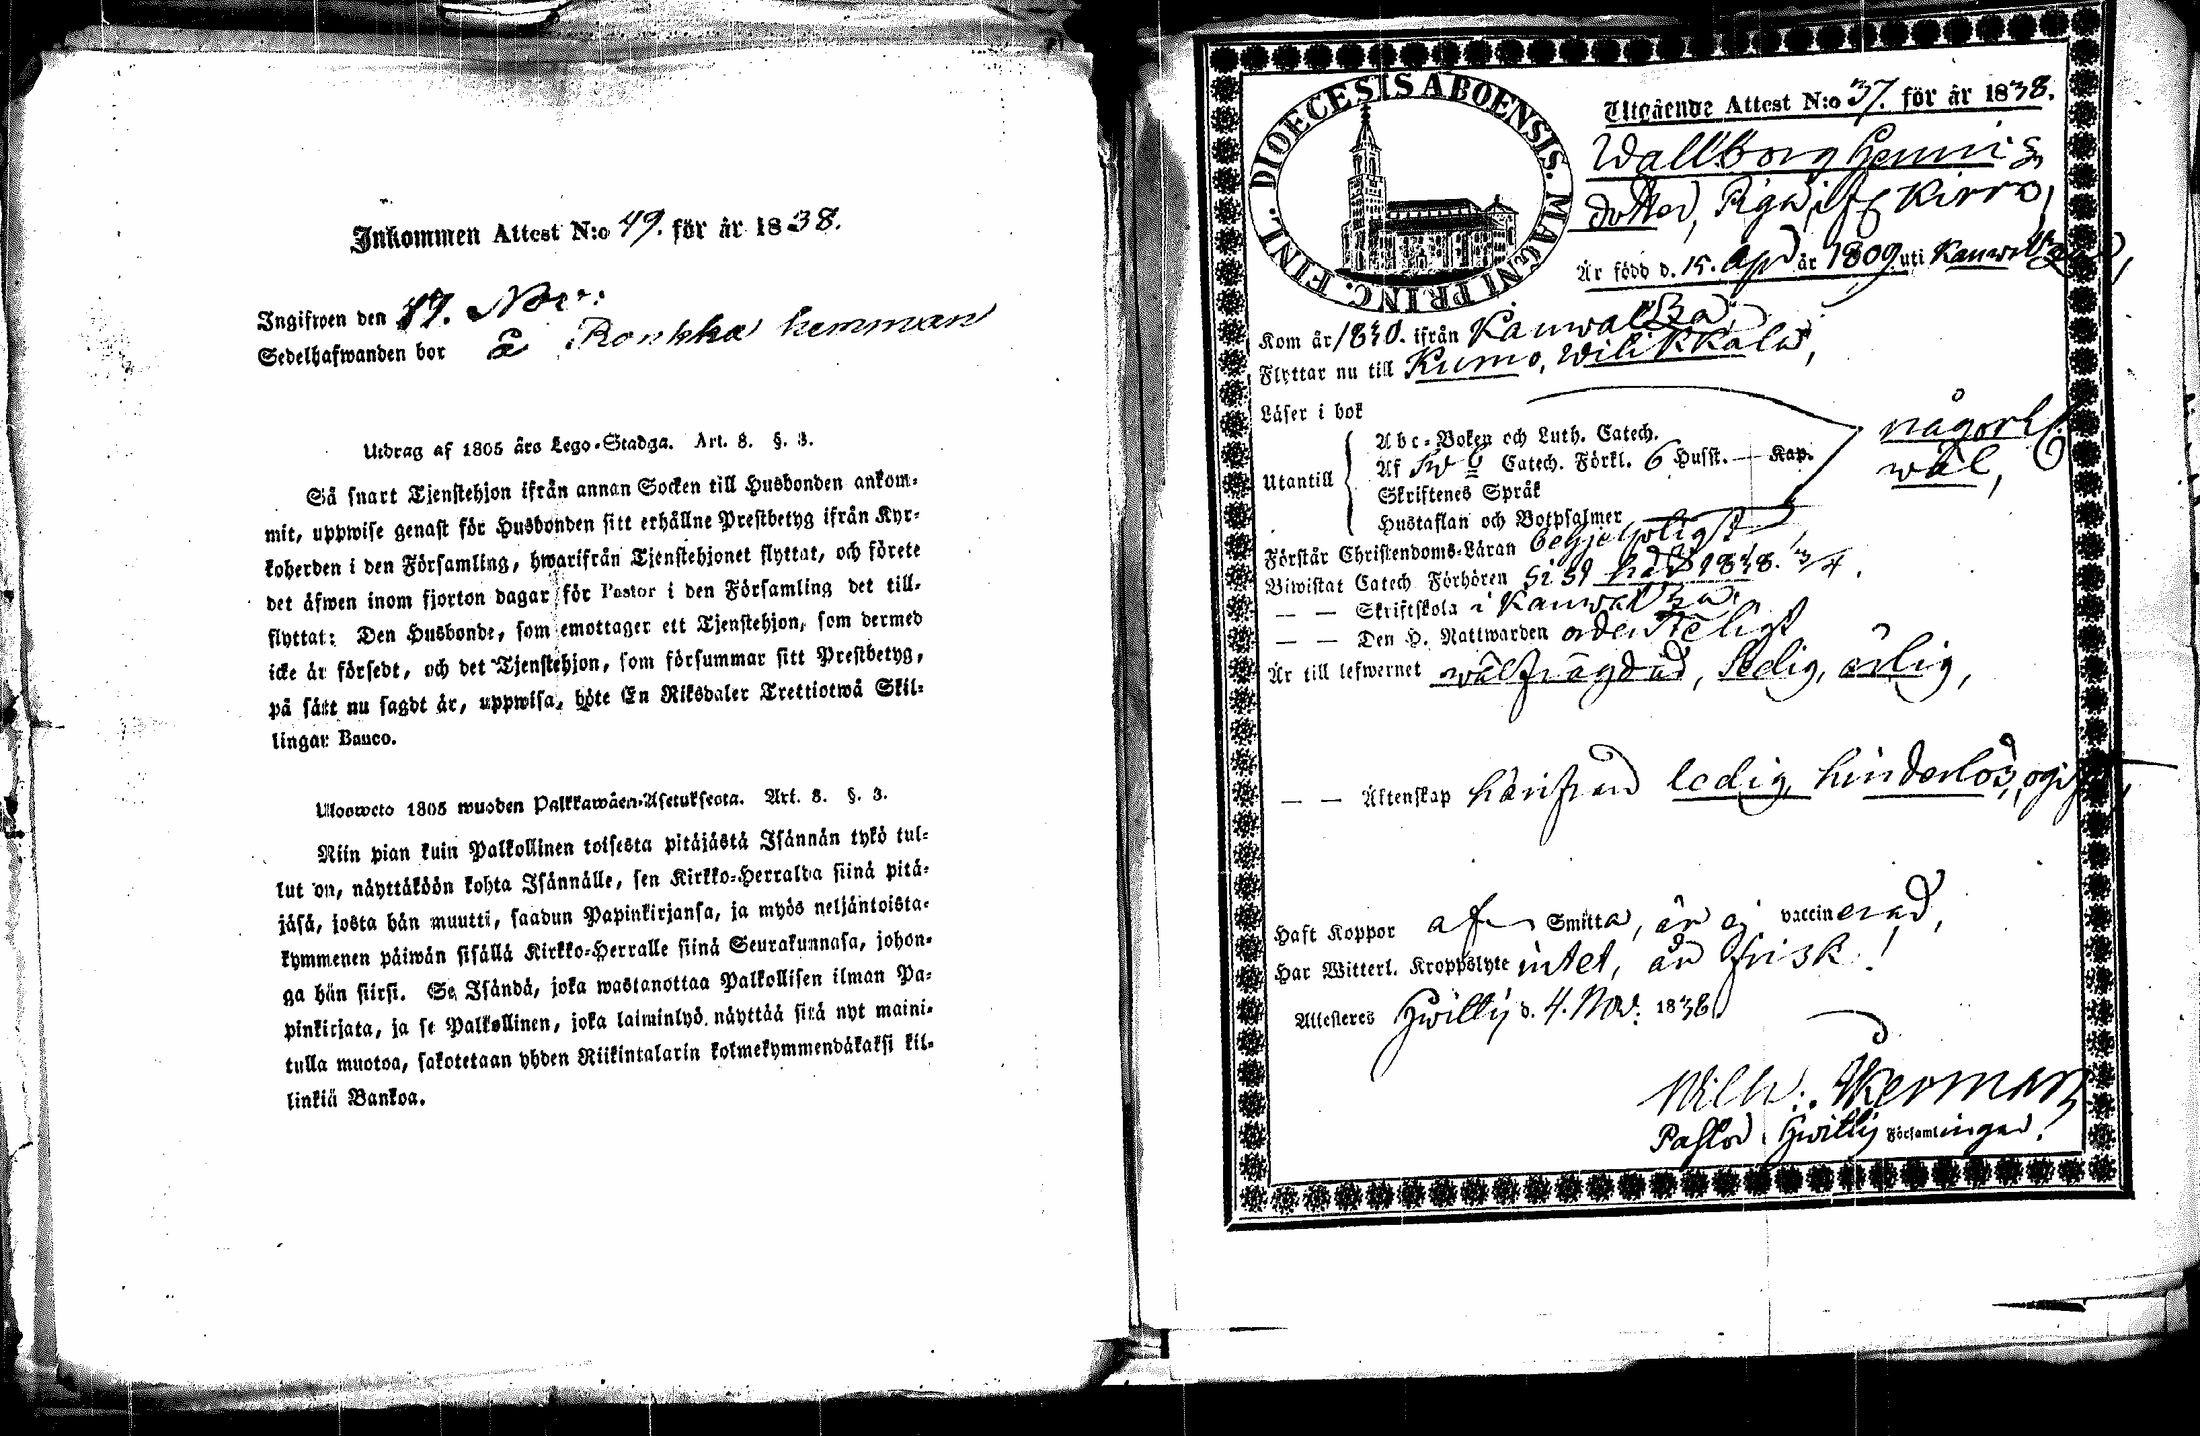 Inkommen Attest N:o 49. för år 1838.
Ingifwen den 19. Nov:
Sedelhafwanden bor å Ronkka hemman
Utdrag af 1805 års Lego-Stadga. Art. 8. §. 3.
Så snart Tjenstehjon ifrån annan Socken till Husbonden ankom-
mit, uppwise genast för Husbonden sitt erhållne Prestbetyg ifrån Kyr-
koherden i den Församling, hwarifrån Tjenstehjonet flyttat, och förete
det äfwen inom fjorton dagar för Pastor i den Församling det till-
flyttat: Den Husbonde, som emottager ett Tjenstehjon, som dermed
icke är försedt, och det Tjenstehjon, som försummar sitt Prestbetyg,
på sätt nu sagdt är, uppwisa, böte En Riksdaler Trettiotwå Skil-
lingar Banco.
Ulosweto 1805 wuoden Palkkawäen-Asetuksesta. Art. 8. §. 3.
Niin pian kuin Palkollinen toisesta pitäjästä Isännän tykö tul-
lut on, näyttäköön kohta Isännälle, sen Kirkko-Herralda siinä pitä-
jäsä, josta hän muutti, saadun Papinkirjansa, ja myös neljäntoista-
kymmenen päiwän sisällä Kirkko-Herralle siinä Seurakunnasa, johon-
ga hän siirsi. Se Isändä, joka wastanottaa Palkollisen ilman Pa-
pinkirjata, ja se Palkollinen, joka laiminlyö näyttää sitä nyt maini-
tulla muotoa, sakotetaan yhden Riikintalarin kolmekymmendäkaksi kil-
linkiä Bankoa.
DIOECESIS ABOENSIS. MAGNI PRINC. FINL.
Utgående Attest N:o 37. för år 1838.
Wallborg Hennis
dotter, Piga, if. Kirra,
Är född d. 15. Apr år 1809. uti Kauwatza,
Kom år 1830. ifrån Kauwatza
Flyttar nu till Kumo, Wilikkala,
Läser i bok någorl.
wäl,
Utantill
Abc-Boken och Luth. Catech.
Af Catech. Förkl. 6 Husst. — Kap.
Skriftenes Språk
Hustaflan och Botpsalmer
Förstår Christendoms-Läran begripligst
Biwistat Catech. Förhören sist här 1838. 3/4.
— — Skriftskola i Kauwatza
— — Den H. Nattwarden ordenteligt
Är till lefwernet wälfrägdad, sedig, ärlig,
— — Äktenskap härifrån ledig, hinderlös, ogift,
Haft Koppor af Smitta, är ej vaccinerad,
Har Witterl. Kroppslyte intet, är frisk!
Attesteras Hwittis d. 4. Nov. 1838
Wilh. Åkerman
Pastor i Hwittis Församlingar.